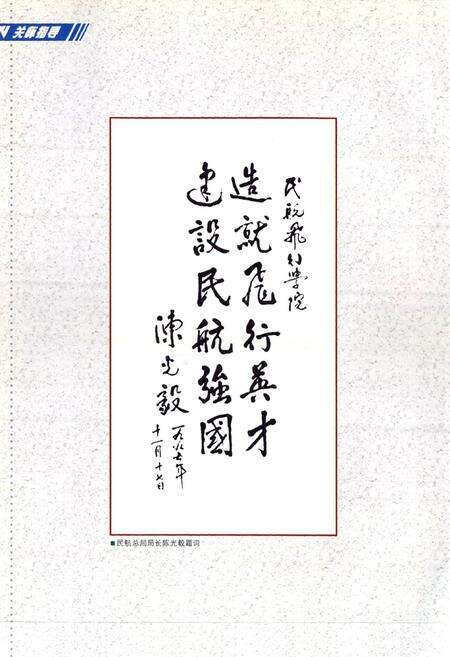 关怀指导
民航飛行學院
造就飛行英才
建設民航強國
陳光毅
一九九七年
十一月十七日
■民航总局局长陈光毅题词